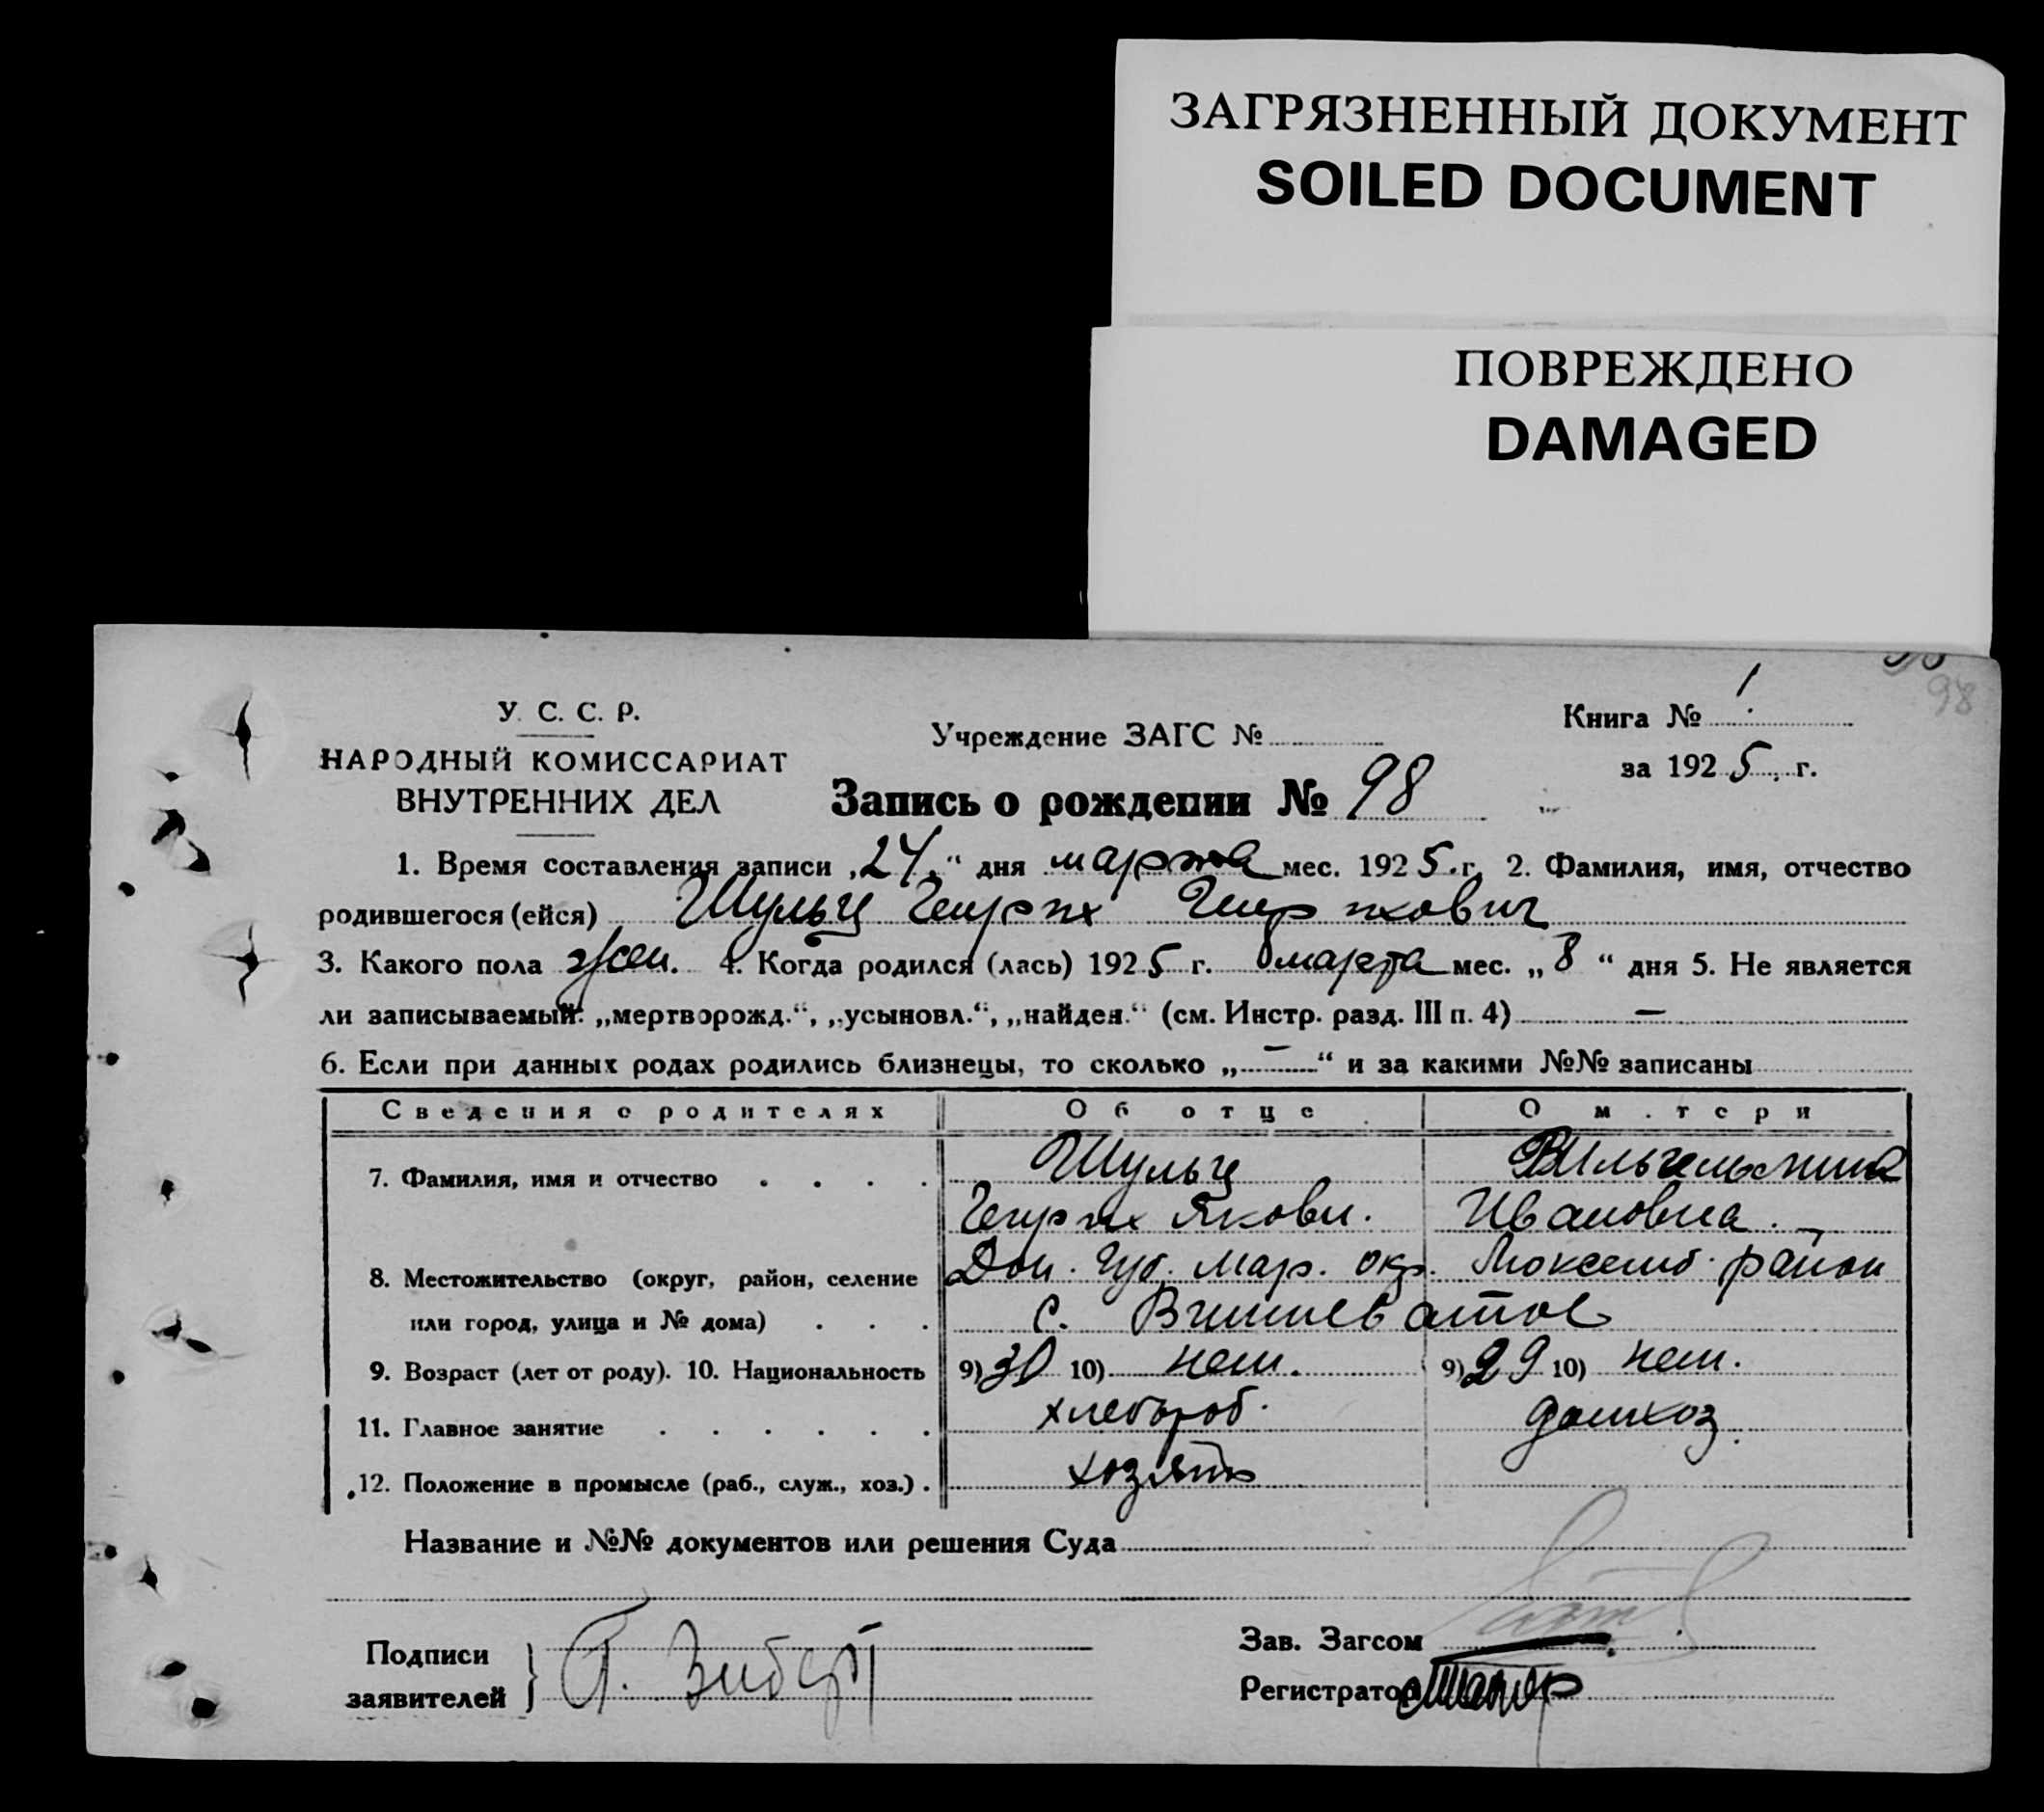 ЗАГРЯЗНЕННЫЙ ДОКУМЕНТ
SOILED DOCUMENT
ПОВРЕЖДЕНО
DAMAGED
98
У. С. С. Р.
НАРОДНЫЙ КОМИССАРИАТ
ВНУТРЕННИХ ДЕЛ
Учреждение ЗАГС №
Книга № 1
за 1925 г.
Запись о рождении № 98
1. Время составления записи „24“ дня марта мес. 1925 г. 2. Фамилия, имя, отчество
родившегося (ейся) Шульц Генрих Генрихович
3. Какого пола жен. 4. Когда родился (лась) 1925 г. марта мес. „8“ дня 5. Не является
ли записываемый: „мертворожд.“, „усыновл.“, „найден.“ (см. Инстр. разд. III п. 4) —
6. Если при данных родах родились близнецы, то сколько „—“ и за какими №№ записаны
Сведения о родителях Об отце О м.тери
7. Фамилия, имя и отчество . . . . Шульц Вильгельмина
Генрих Якови. Ивановна.
8. Местожительство (округ, район, селение Дон. Губ. Мар. окр. Люксемб. район
или город, улица и № дома) . . . с.
9. Возраст (лет от роду). 10. Национальность 9) 30 10) нем. 9) 29 10) нем.
11. Главное занятие . . . . . . хлебороб. домхоз.
12. Положение в промысле (раб., служ., хоз.) . хозяин
Название и №№ документов или решения Суда
Подписи
заявителей } Г. Зиберт
Зав. Загсом
Регистратор